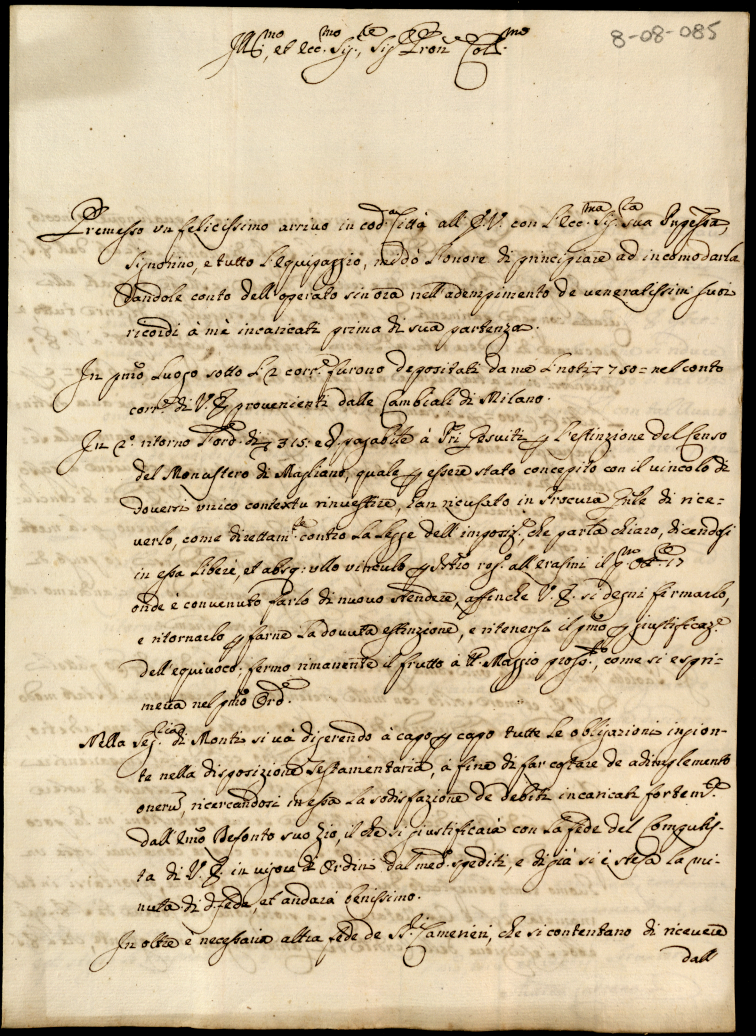 8-08-085
Ill.mo, et Ecc.mo Sig.re, Sig.re Pron.e Coll.mo
Premesso un felicissimo arrivo in cod.a Città all'E.V. con l'Ecc.ma Sig.ra sua Pn̄gessa,
Signorino, e tutto l'Equipaggio, mi dò l'onore di principiare ad incomodarla
dandole conto dell'operato sin ora nell'adempimento de veneratissimi suoi
ricordi à mè incaricati prima di sua partenza.
In pmo luogo sotto li 2 corr.e furono depositati da me 7750= nel conto
corr.e di V.E. provenienti dalle Cambiali di Milano.
In 2.o ritorno l'ord. di 315: pagabile à PPri Gesuiti p l'estinzione del Censo
del Monastero di Magliano, quale p essere stato concepito con il vincolo di
doversi unico contextu rinvestire, han ricusato in Procura Gnle di rice-
verlo, come direttam.te contro la legge dell'imposiz.e, che parla chiaro, dicendosi
in essa libere, et absq: ullo vinculo p Istrō rog.o all'
onde è convenuto farlo di nuovo stendere, affinche V.E. si degni firmarlo,
e ritornarlo p farne la dovuta estinzione, e ritenersi il pmo p giustificaz.e
dell'equivoco: fermo rimanente il frutto à tt.o Maggio pross.o, come si espri-
meva nel pmo Ord.e
Nella Seg.ria di Monti si và digerendo à capo p capo tutte le obligazioni ingion-
te nella disposizione Testamentaria, à fine di far costare de adimplemento
onerū, ricercandosi in essa la sodisfazione de debiti incaricati fortem.te
dall'Emō suo Zio, il che si giustificaià con la fede del Computis-
ta di V.E. in vigore di Ordini dal med.o spediti, e di già si è stesa la mi-
nuta di d.a fede, et andarà benissimo.
In oltre è necessaria altra fede de SS.ri Camerieri, che si contentano di ricevere
dall